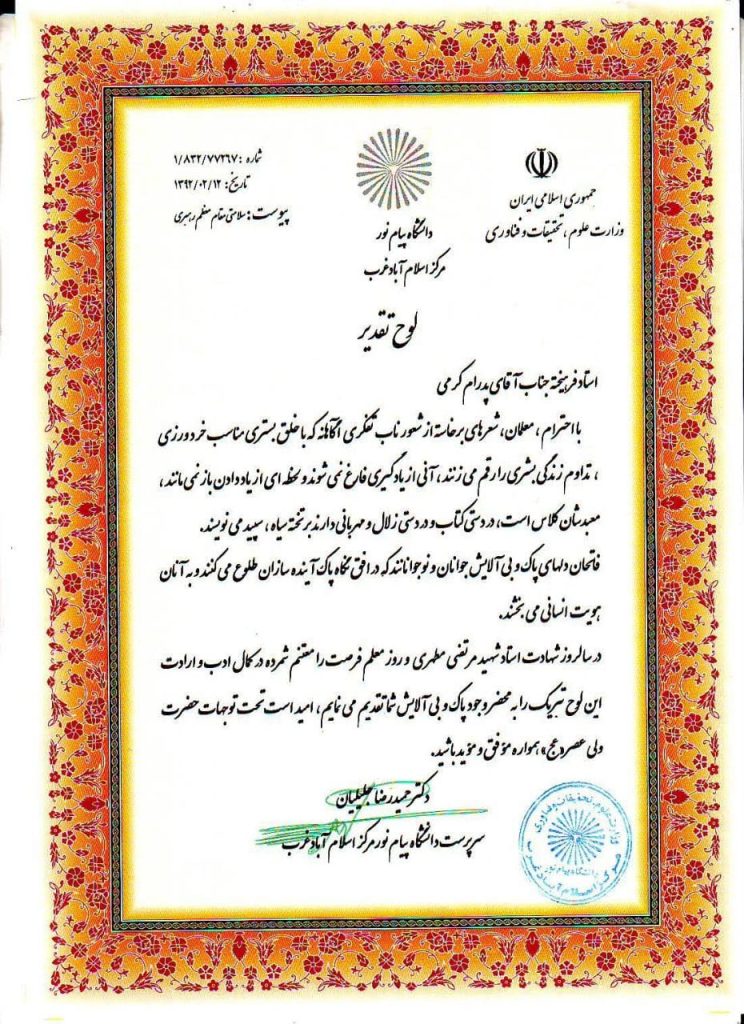 جمهوری اسلامی ایران
وزارت علوم، تحقیقات و فناوری
دانشگاه پیام نور
مرکز اسلام آباد غرب
شماره: ۱/۸۳۲/۷۷۲۶۷
تاریخ: ۱۳۹۲/۰۲/۱۲
پیوست: سلامتی مقام معظم رهبری
لوح تقدیر
استاد فرهیخته جناب آقای پدرام کرمی
با احترام، معلمان، شعرهای برخاسته از شعور ناب تفکری آگاهانه که با خلق بستری مناسب خردورزی
، تداوم زندگی بشری را رقم می زنند، آنی از یادگیری فارغ نمی شوند و لحظه ای از یاد دادن باز نمی مانند،
معبدشان کلاس است، در دستی کتاب و در دستی زلال و مهربانی دارند بر تخته سیاه، سپید می نویسند.
فاتحان دلهای پاک و بی آلایش جوانان و نوجوانانند که در افق نگاه پاک آینده سازان طلوع می کنند و به آنان
هویت انسانی می بخشند.
در سالروز شهادت استاد شهید مرتضی مطهری و روز معلم فرصت را مغتنم شمرده در کمال ادب و ارادت
این لوح تبریک را به محضر وجود پاک و بی آلایش شما تقدیم می نمایم، امید است تحت توجهات حضرت
ولی عصر «عج» همواره مؤفق و مؤید باشید.
دکتر حمیدرضا جلیلیان
سرپرست دانشگاه پیام نور مرکز اسلام آباد غرب
وزارت علوم، تحقیقات و فناوری
دانشگاه پیام نور
مرکز اسلام آباد غرب